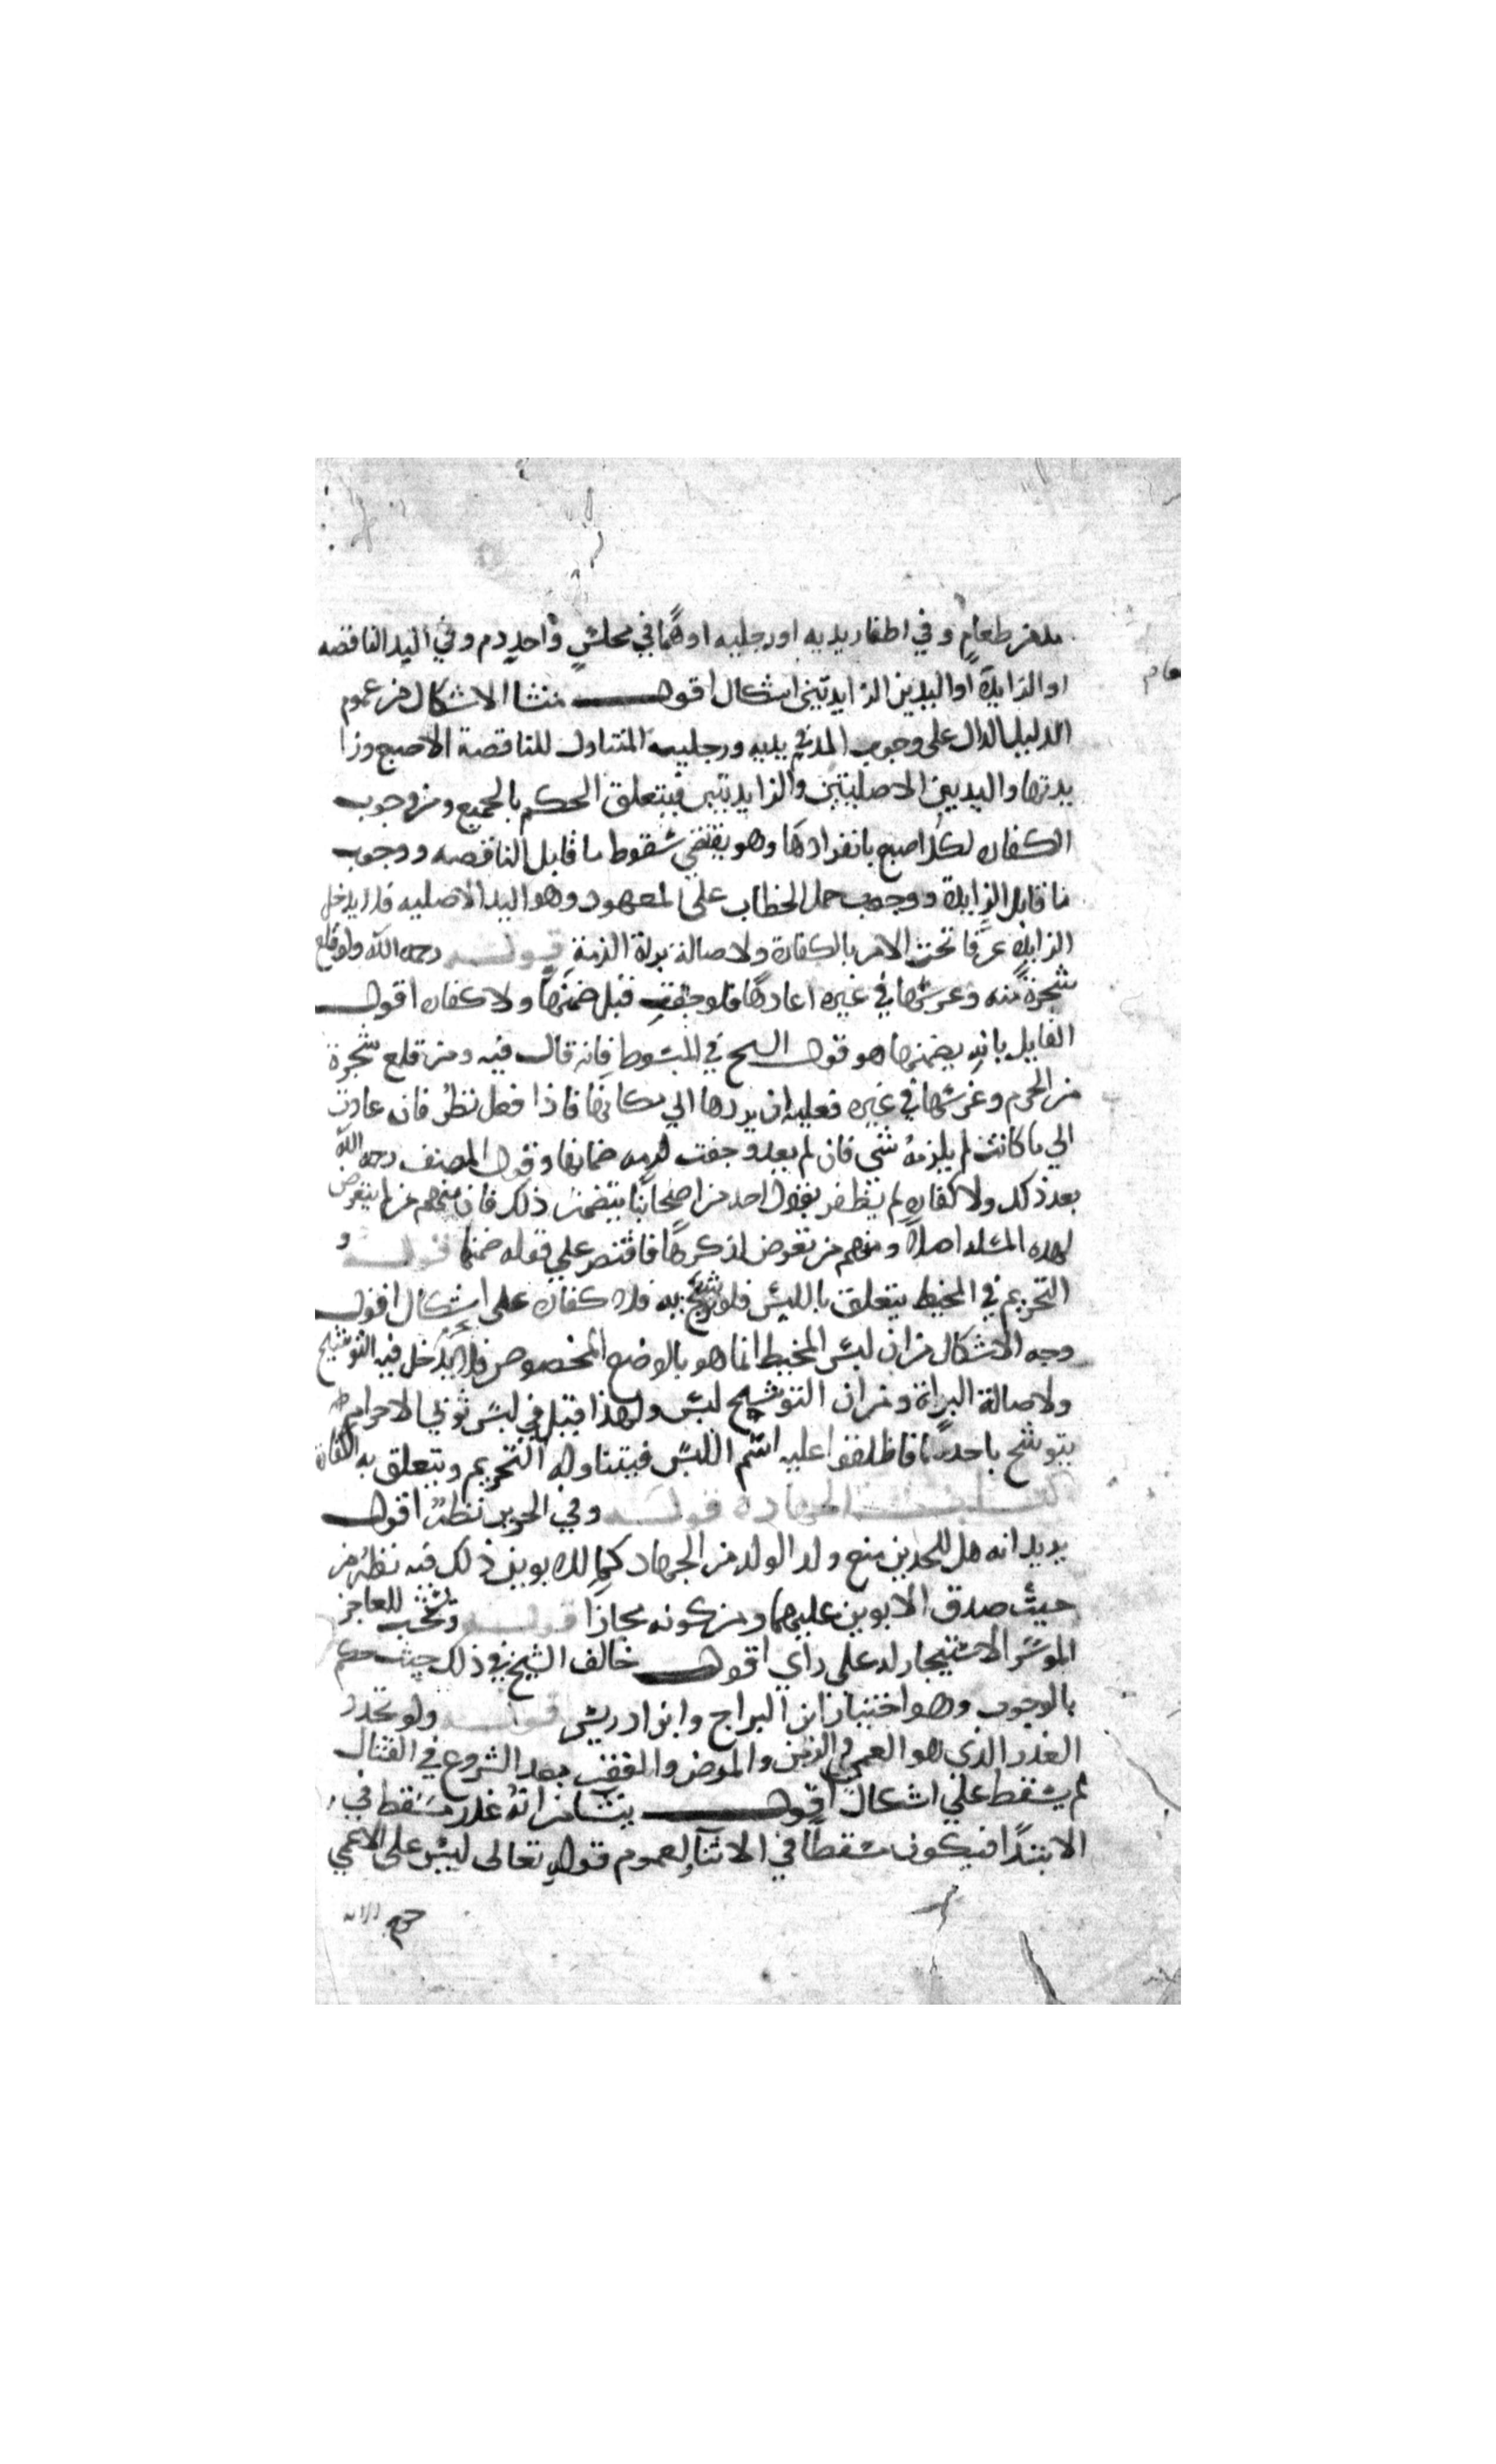 مد من طعام وفي اظفار يديه او رجليه او هما في مجلس واحد دم وفي اليد الناقصه
او الزايدة او اليدين الزايدتين اشكال اقول منشا الاشكال من عموم
الدليل الدال على وجوب الدم في يديه ورجليه المتناول للناقصة الاصبع وزا
يدتها واليدين الاصليتين والزايدتين فيتعلق الحكم بالجميع ومن وجوب
الكفاره لكل اصبع بانفرادها وهو يقتضي سقوط ما قابل الناقصه ووجوب
ما قابل الزايدة ووجوب حمل الخطاب على المعهود وهو اليد الاصليه فلا يدخل
الزايدة عرفا تحت الامر بالكفارة ولاصالة براة الذمة قوله رحمه الله ولو قلع
شجرة منه وغرسها في غيره اعادها فلو جفت قيل ضمنها ولا كفاره اقول
القايل بانه يضمنها هو قول الشيخ في المبسوط فانه قال فيه ومن قلع شجرة
من الحرم وغرسها في غيره فعليه ان يردها الي مكانها فاذا فعل نظر فان عادت
الي ما كانت لم يلزمه شي فان لم يعد وجفت لزمه ضمانها وقول المصنف رحمه الله
بعد ذلك ولا كفاره لم نظفر بقول احد من اصحابنا يتضمن ذلك فان منهم من لم يتعرض
لهذه المسله اصلا ومنهم من تعرض لذكرها فاقتصر علي قوله ضمنها قوله و
التحريم في المخيط يتعلق باللبس فلو توشح به فلا كفاره على اشكال اقول
وجه الاشكال من ان لبس المخيط انما هو بالوضع المخصوص فلا يدخل فيه التوشيح
ولاصالة البراة ومن ان التوشيح لبس ولهذا قيل في لبس ثوبي الاحرام
يتوشح باحدهما فاطلقوا عليه اسم اللبس فيتناوله التحريم ويتعلق به الكفارة
كتاب الجهاد قوله وفي الجدين نظر اقول
يريد انه هل للجدين منع ولد الولد من الجهاد كما للابوين ذلك فيه نظر من
حيث صدق الابوين عليهما ومن كونه مجازا قوله وتستحب للعاجز
الموسر الاستيجار له على راي اقول خالف الشيخ في ذلك حيث حكم
بالوجوب وهو اختيار ابن البراج وابن ادريس قوله ولو تجدد
العذر الذي هو العمي والزمن والمرض والفقر بعد الشروع في القتال
لم يسقط علي اشكال اقول ينشا من انه عذر مسقط في
الابتدا فيكون مسقطا في الاثنا لعموم قوله تعالى ليس على الاعمي
حرج